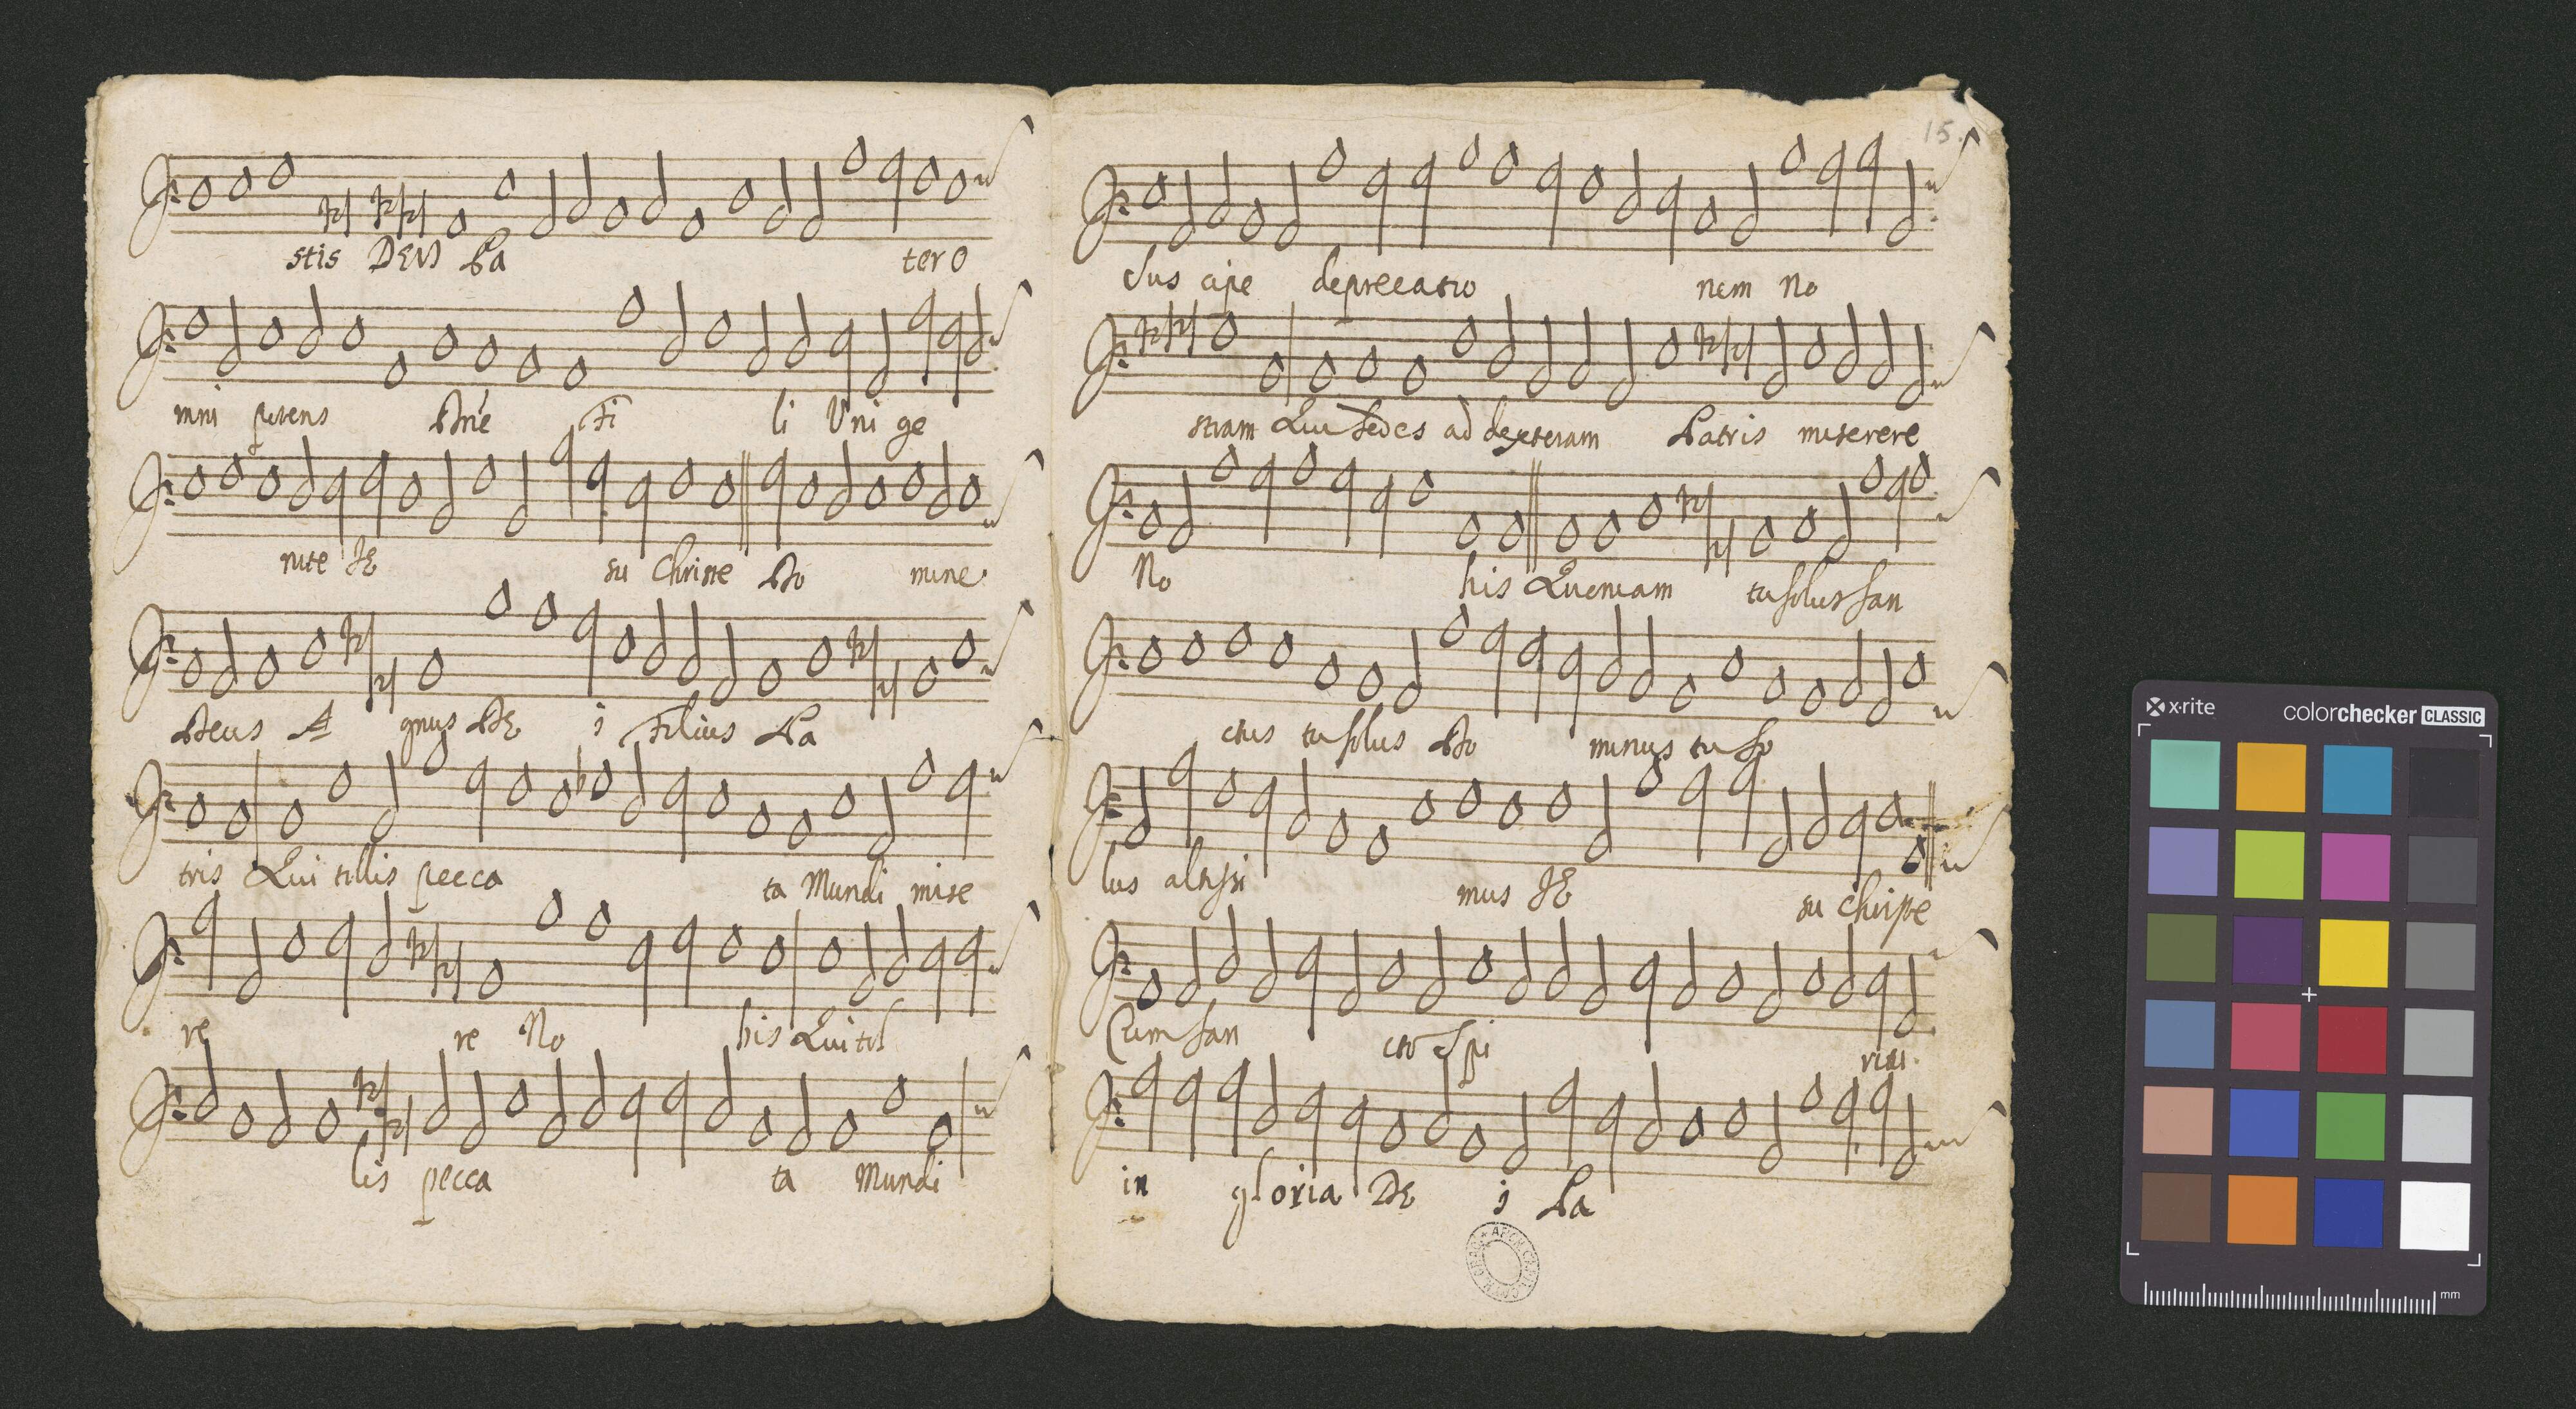 stis DEUS Pa ter O
mni potens Dñe Fi li Uni ge
nite JE su Christe Do mine
Deus A gnus DE i Filius Pa
tris Qui tollis pecca ta Mundi mise
re re No bis Qui tol
lis pecca ta Mundi
15.
Sus cipe deprecatio nem No
stram Qui Sedes ad dexteram Patris miserere
No bis Quoniam tu solus San
ctus tu solus Do minus tu So
lus altissi mus JE su Christe
Cum San cto Spi ritu.
in gloria DE i Pa
x-rite
colorchecker CLASSIC
mm